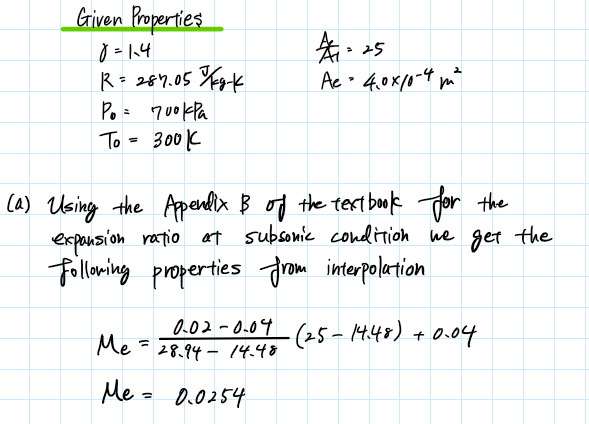 Given Properties
γ = 1.4
Ae/At = 25
R = 287.05 J/kg-K
Ae = 4.0×10⁻⁴ m²
P₀ = 700 kPa
T₀ = 300 K
(a) Using the Appendix B of the textbook for the
expansion ratio at subsonic condition we get the
following properties from interpolation
Me = (0.02 - 0.04)/(28.94 - 14.48) (25 - 14.48) + 0.04
Me = 0.0254